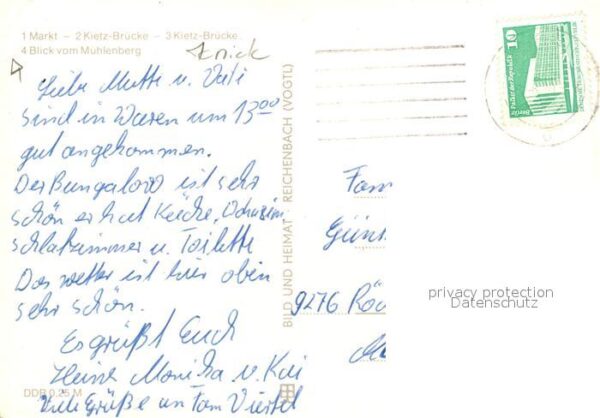 1 Markt – 2 Kietz-Brücke – 3 Kietz-Brücke
4 Blick vom Mühlenberg
Knick
Liebe Mutti u. Vati
sind in Waren um 13⁰⁰
gut angekommen.
Der Bungalow ist sehr
schön er hat Küche,
schlafzimmer u. Toilette
Das wetter ist hier oben
sehr schön.
Es grüßt Euch
Heinz Monika u. Kai
Viele Grüße an Fam Viertel
DDR 0,25 M
BILD UND HEIMAT REICHENBACH (VOGTL)
10
Palast der Republik
Berlin
DDR
Fam
Günt
9276
privacy protection
Datenschutz